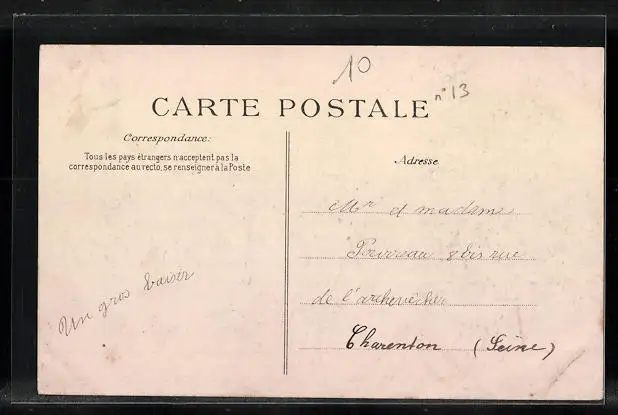 10
n° 13
CARTE POSTALE
Correspondance:
Tous les pays étrangers n'acceptent pas la
correspondance au recto, se renseigner à la Poste
Un gros baiser
Adresse
Mr et madame
8 bis rue
de l'archevêché
Charenton (Seine)